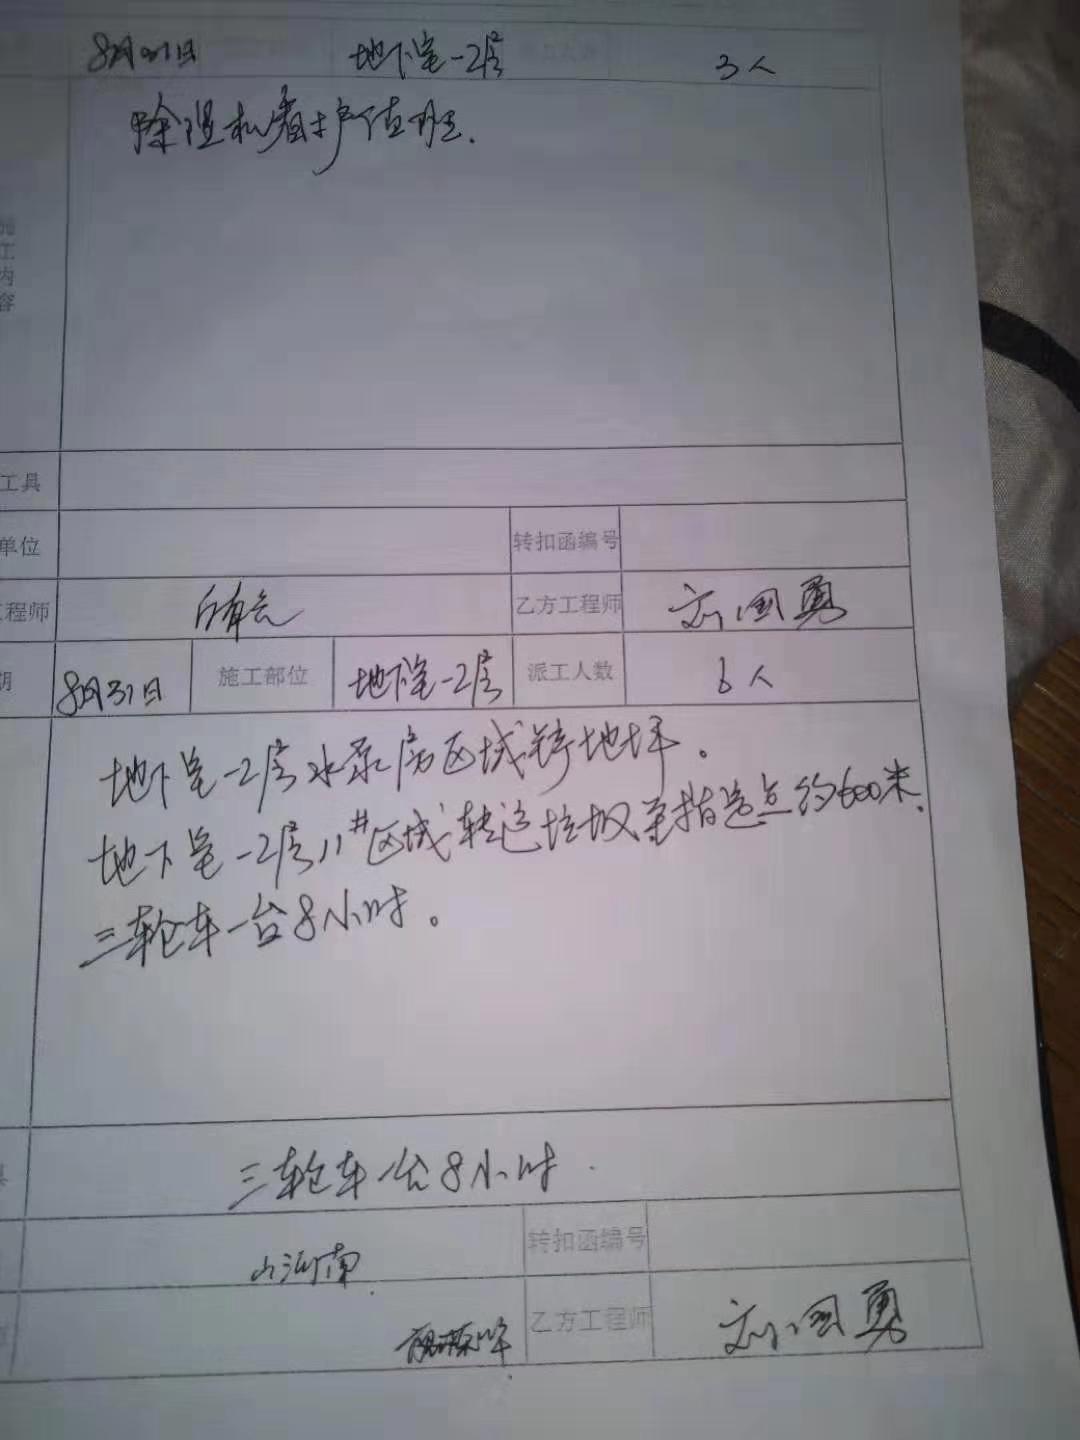 8月31日 地下室-2层 3人
除湿机看护值班.
施
工
内
容
工具
单位 转扣函编号
程师 乙方工程师 刘国勇
期 8月31日 施工部位 地下室-2层 派工人数 6人
地下室-2层水泵房区域 地坪。
地下室-2层11#区域转运垃圾至指定点约600米.
三轮车一台8小时。
三轮车一台8小时.
转扣函编号
乙方工程师 刘国勇